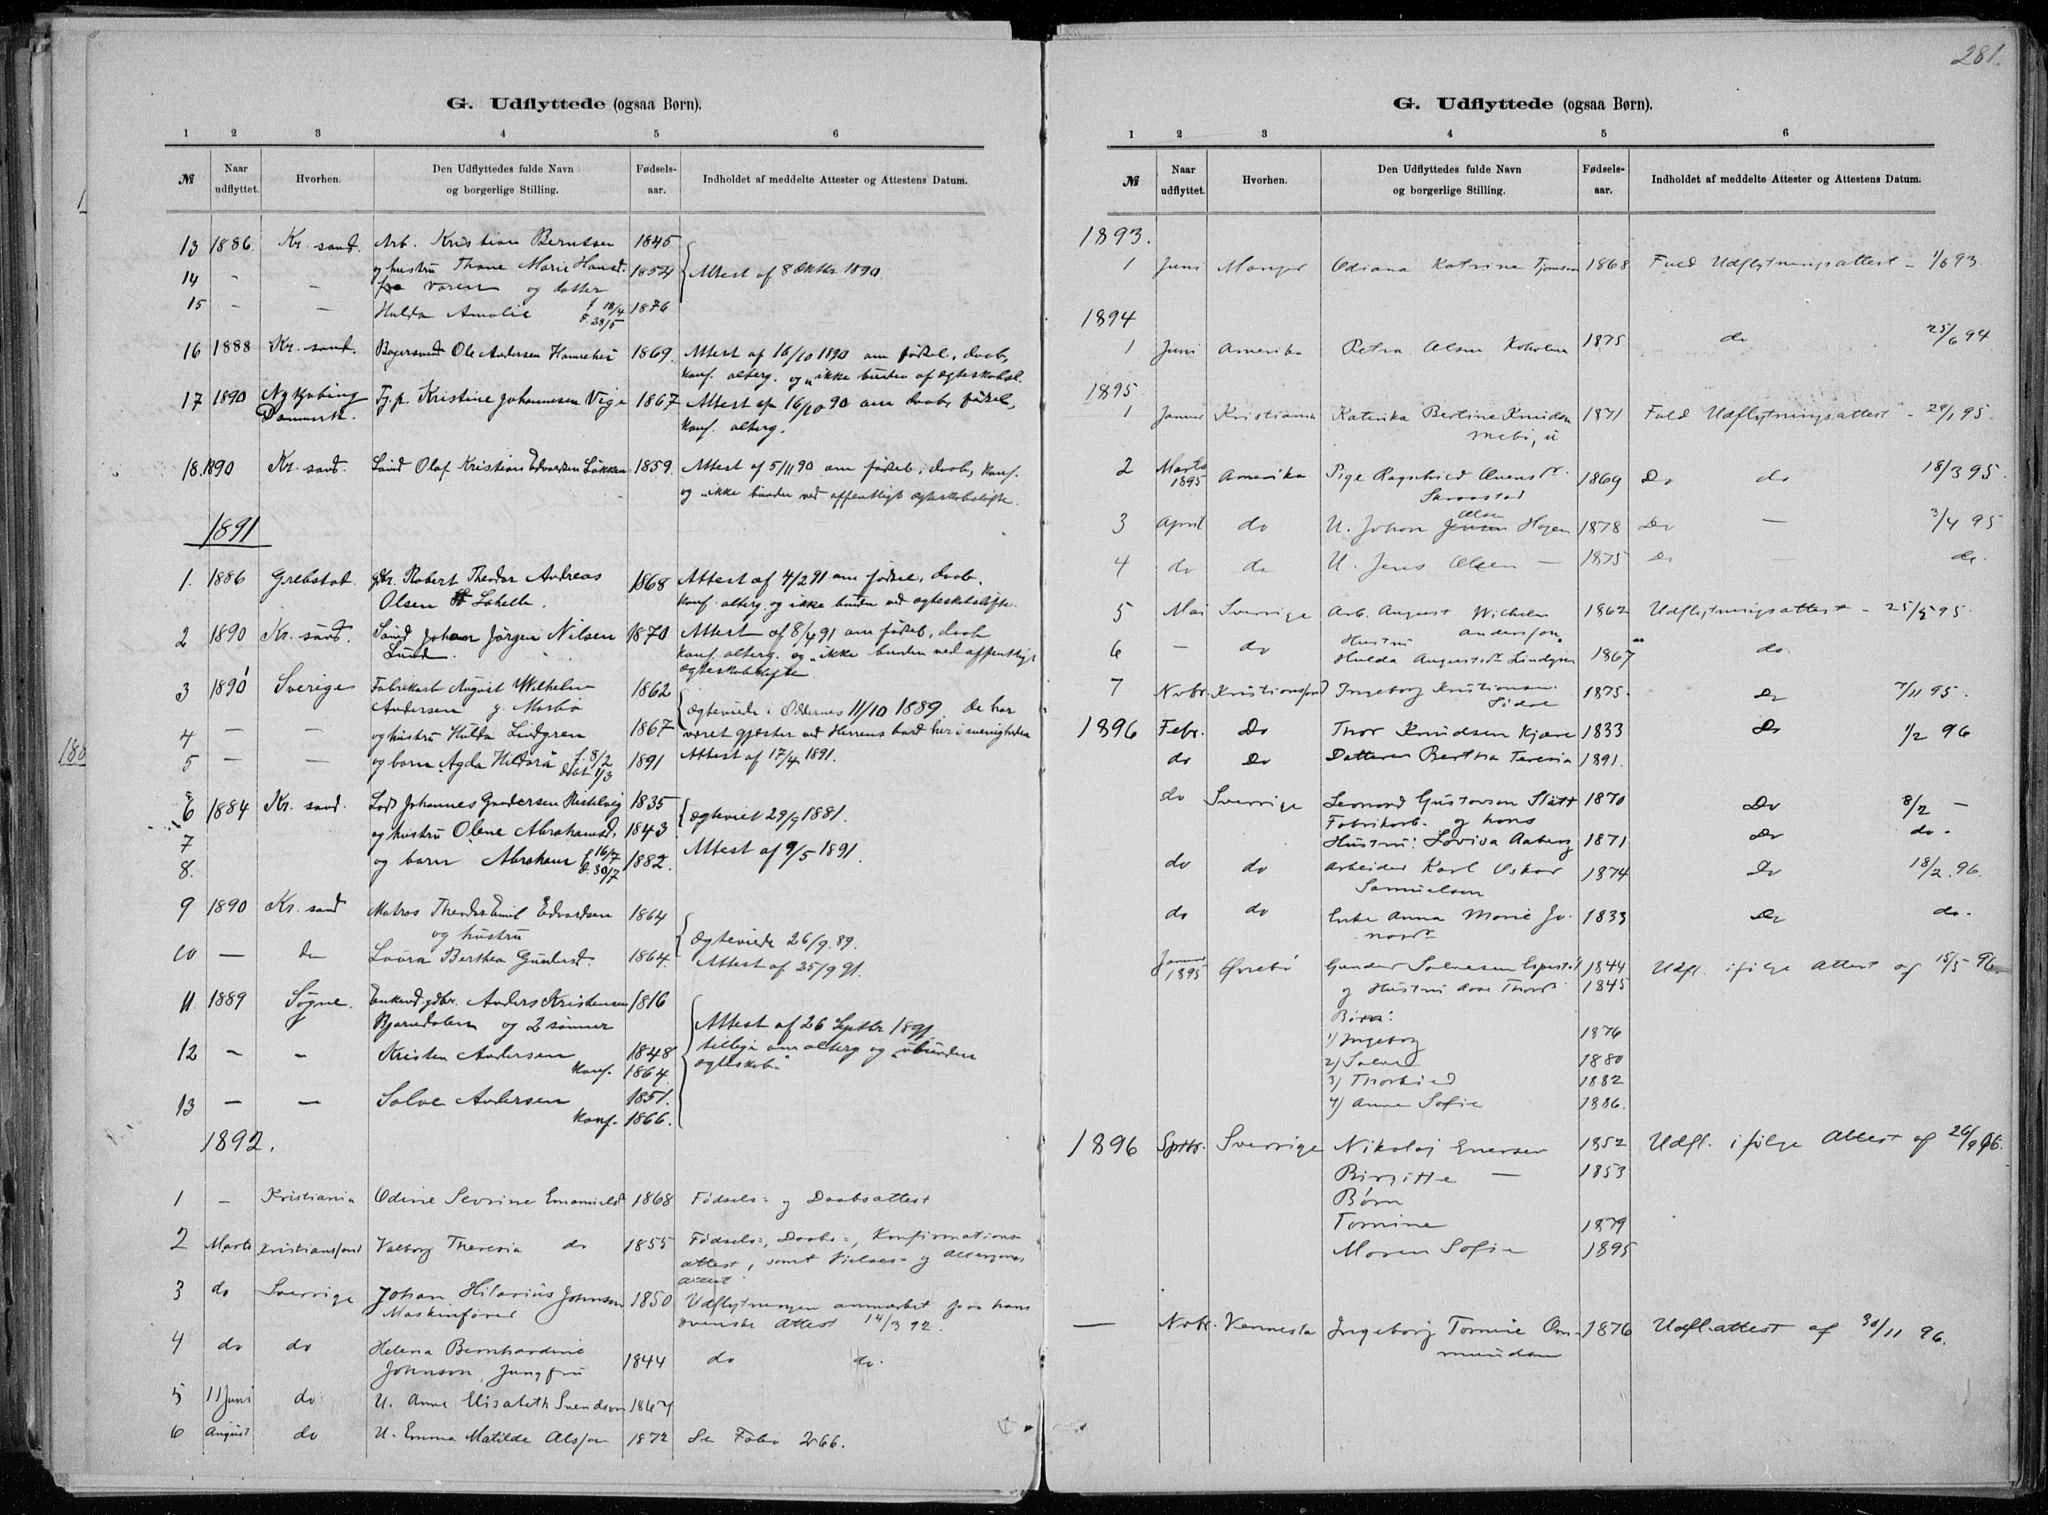 G. Udflyttede (ogsaa Børn).
1 2 3 4 5 6
№ Naar udflyttet. Hvorhen. Den Udflyttedes fulde Navn og borgerlige Stilling. Fødsels-aar. Indholdet af meddelte Attester og Attestens Datum.
13 1886. Kr. sand. Arb. Kristian Berntsen 1845
14 - - og hustru Thane Marie Hansd. 1854 Attest af 8 Oktbr 1890.
og datter
15 - - Hulda Amalie 1876
16 1888 Kr. sand. Ole Andersen 1869. Attest af 16/10 1890 om fødsel, daab,
konf. alterg. og ikke bunden af ægteskabsl.
17 1890 Nykjøbing Danmark Tj.p. Kristine Johannesen Vige 1867 Attest af 16/10 90 om daab, fødsel,
konf. alterg.
18. 1890 Kr. sand. Olaf Kristian Edvardsen Løkken 1859. Attest af 5/11 90 om fødsel, daab, konf.
og ikke bunden ved offentligt ægteskabsløfte.
1891
1. 1886 Grebstad. gbr. Robert Theodor Andreas 1868 Attest af 4/2 91 om fødsel, daab,
Olsen konf. alterg. og ikke bunden ved ægteskabsløfte.
2 1890 Kr. sand. Johan Jørgen Nilsen 1870 Attest af 8/4 91 om fødsel, daab
Lund. konf. alterg. og ikke bunden ved offentligt
ægteskabsløfte.
3 1890 Sverige Fabrikarb. August Wilhelm 1862 Ægteviede i Oddernes 11/10 1889. De har
Andersen Mosbø
4 - - og hustru Hulda Lindgren 1867 været gjæster ved Herrens bord her i menigheden
5 - - og barn Agda Hildora f. 8/2 1891 Attest af 17/4 1891.
døbt 1/3
6 1884 Kr. sand. Lods Johannes Gundersen 1835 Ægteviet 29/9 1881.
7 og hustru Olene Abrahamsd. 1843
8. og barn Abraham f. 16/7 1882. Attest af 9/5 1891.
d. 30/7
9 1890 Kr. sand Matros Theodor Emil Edvardsen 1864
og hustru Ægteviede 26/9. 89.
10 - do Laura Berthea Gundersd. 1864. Attest af 25/9 91.
11 1889 Søgne. Enkemd. gbr. Anders Kristensen 1816
Bjørndalen og 2 sønner Attest af 26 Septbr 1891
12 - - Kristen Andersen 1848 tillige om alterg og ubunden
konf. 1864. ægteskab.
13 - - Salve Andersen 1851.
konf. 1866.
1892.
1 - Kristiania Odine Sevrine Emanuelsd 1868 Fødsels- og Daabsattest
2 Marts Kristiansand Valborg Theresia do 1855 Fødsels-, Daabs-, Konfirmations
attest, samt Vielses- og Altergangs
attest
3 do Sverrige Johan Hilarius Johnson 1850 Udflytningen anmærket paa hans
Maskinfører svenske Attest 14/3 92.
4 do do Helena Bernhardine
Johnson, Jungfru 1844 do do.
5 11 Juni do U. Anne Elisabeth Svendsen 1867
6 August do U. Emma Matilde Olsson 1872 Se Folio 266.
281.
G. Udflyttede (ogsaa Børn).
1 2 3 4 5 6
№ Naar udflyttet. Hvorhen. Den Udflyttedes fulde Navn og borgerlige Stilling. Fødsels-aar. Indholdet af meddelte Attester og Attestens Datum.
1893.
1 Juni Manger Odiana Katrine 1868 Fuld Udflytningsattest - 1/6 93
1894
1 Juni Amerika Petra Olsen 1875 do 25/6 94
1895
1 Januar Kristiania Katinka Bertine Knudsen 1871 Fuld Udflytningsattest - 29/1 95.
2 Marts 1895 Amerika Pige Ragnhild 1869 Do do 18/3 95.
3 April do U. Johan Jensen Olsen Hagen 1878 Do - 3/4 95
4 do do U. Jens Olsen - 1875 Do - do.
5 Mai Sverrige Arb. August Wilhelm 1862 Udflytningsattest - 25/5 95.
Andersson
6 - do Hustru
Hulda Augusta Lindgren 1867 do.
7 Novbr. Kristiansand Ingeborg Kristiansen 1875. Do 7/11 95.
1896 Febr. Do Thor Knudsen Kjære 1833 Do 1/2 96
do Do Datteren Bertha Teresia 1891.
do Sverrige Leonard Gustavson Slätt 1870 Do 8/2 -
Fabrikarb. og hans
Hustru: Lovisa Aaberg 1871 Do do.
do do Arbeider Karl Oskar 1874 Do 18/2. 96.
Samuelsen
do do Enke Anna Marie Jo- 1833 Do do.
nasd.
Januar 1895 Øvrebø Gunder Salvesen 1844 Udfl. ifølge Attest af 15/5 96
og Hustru 1845
Børn:
1) Ingeborg 1876
2) Salve 1880
3) Thorbiød 1882
4) Anne Sofie 1886.
1896 Sptbr. Sverrige Nikolaj Enersen 1852 Udfl. ifølge Attest af 26/9 96.
Birgitte - 1853
Børn
Tomine 1879
Maren Sofie 1895
- Novbr. Vennesla Ingeborg Tomine Om- 1876 Udfl.attest af 30/11 96.
mundsen